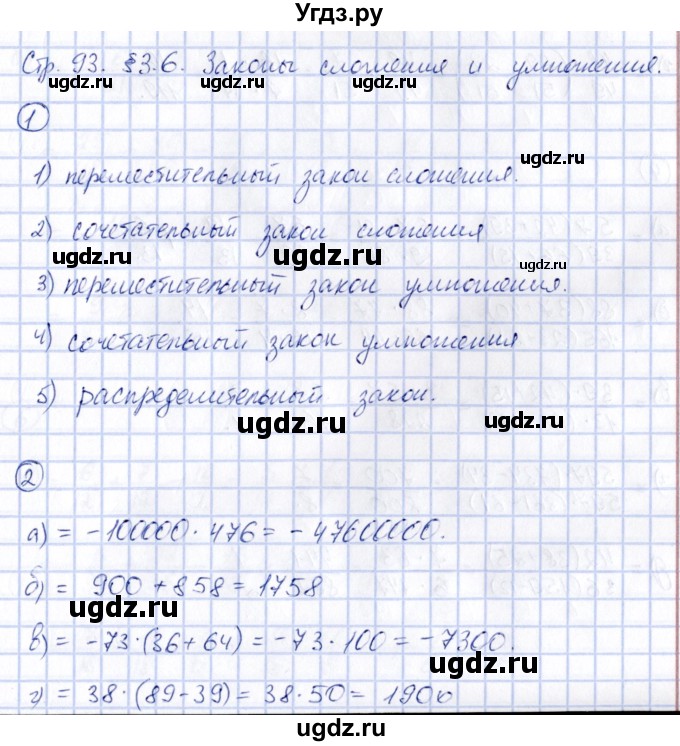 Угдз.ру
Стр. 93. §3.6. Законы сложения и умножения.
ugdz.ru ugdz.ru ugdz.ru
1
ugdz.ru
1) переместительный закон сложения.
2) сочетательный закон сложения
ugdz.ru ugdz.ru ugdz.ru
3) переместительный закон умножения.
4) сочетательный закон умножения
5) распределительный закон.
ugdz.ru ugdz.ru
2
а) = -100000 · 476 = - 47600000.
б) = 900 + 858 = 1758
ugdz.ru ugdz.ru
в) = -73 · (36 + 64) = -73 · 100 = -7300.
ugdz.ru
г) = 38 · (89 - 39) = 38 · 50 = 1900
ugdz.ru